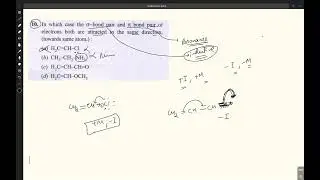 10. In which case the σ-bond pair and π bond pair of
electrons both are attracted to the same direction.
(towards same atom.)
(a) H₂C=CH-Cl
(b) CH₂=CH-NH₂
(c) H₂C=CH-CH=O
(d) H₂C=CH-OCH₃
Resonance
+I, +M
-I, -M
CH₂=CH-Cl:
+M, -I
CH₂=CH-CH=
-I